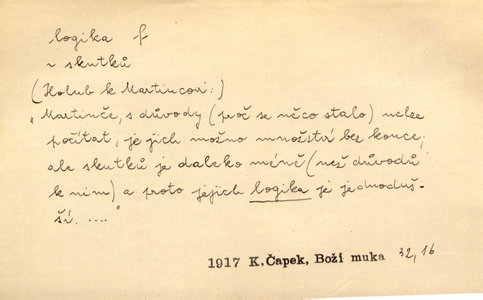 logika f
~ skutků
(Holub k Martincovi:)
"Martinče, s důvody (proč se něco stalo) nelze
počítat, je jich možno množství bez konce;
ale skutků je daleko méně (než důvodů
k nim) a proto jejich logika je jednoduš-
ší. ...."
1917 K.Čapek, Boží muka 32, 16